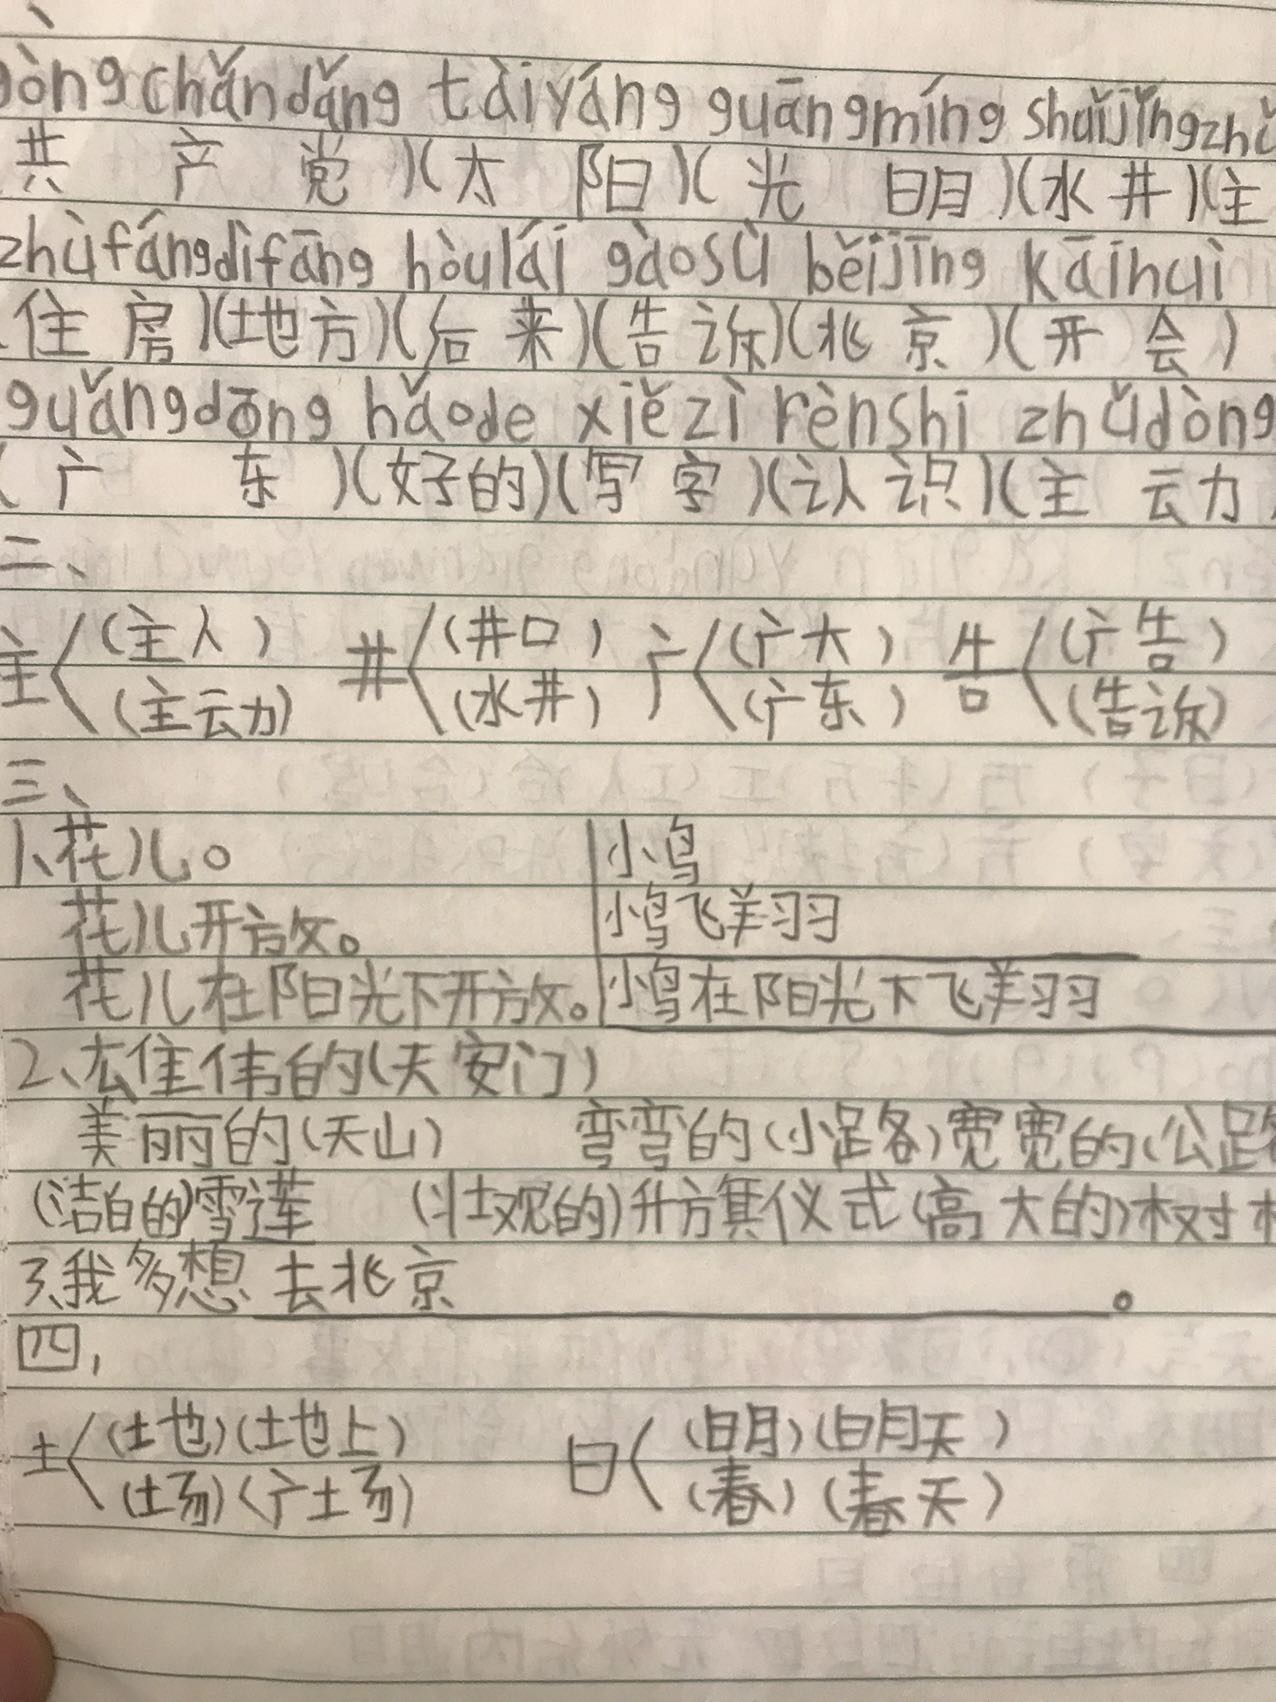 、
gòngchǎndǎng tàiyáng guāngmíng shuǐjǐngzhǔ
共 产 党)(太 阳)(光 明)(水井)(主
zhùfángdìfāng hòulái gàosù běijīng kāihuì
住房)(地方)(后来)(告诉)(北京)(开会)
guǎngdōng hǎode xiězì rènshi zhǔdòng
(广 东)(好的)(写字)(认识)(主动
二、
主 (主人) 井 (井口) 广 (广大) 告 (广告)
(主动) (水井) (广东) (告诉)
三、
1、花儿。 小鸟
花儿开放。 小鸟飞翔
花儿在阳光下开放。 小鸟在阳光下飞翔
2、雄伟的(天安门)
美丽的(天山) 弯弯的(小路)宽宽的(公路
(洁白的)雪莲 (壮观的)升旗仪式(高大的)树木
3、我多想去北京 。
四,
土 (地)(土地上) 日 (明)(明天)
(场)(广场) (春)(春天)